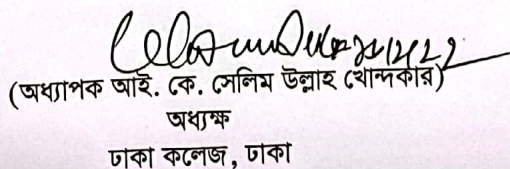 (অধ্যাপক আই. কে. সেলিম উল্লাহ খোন্দকার)
অধ্যক্ষ
ঢাকা কলেজ, ঢাকা